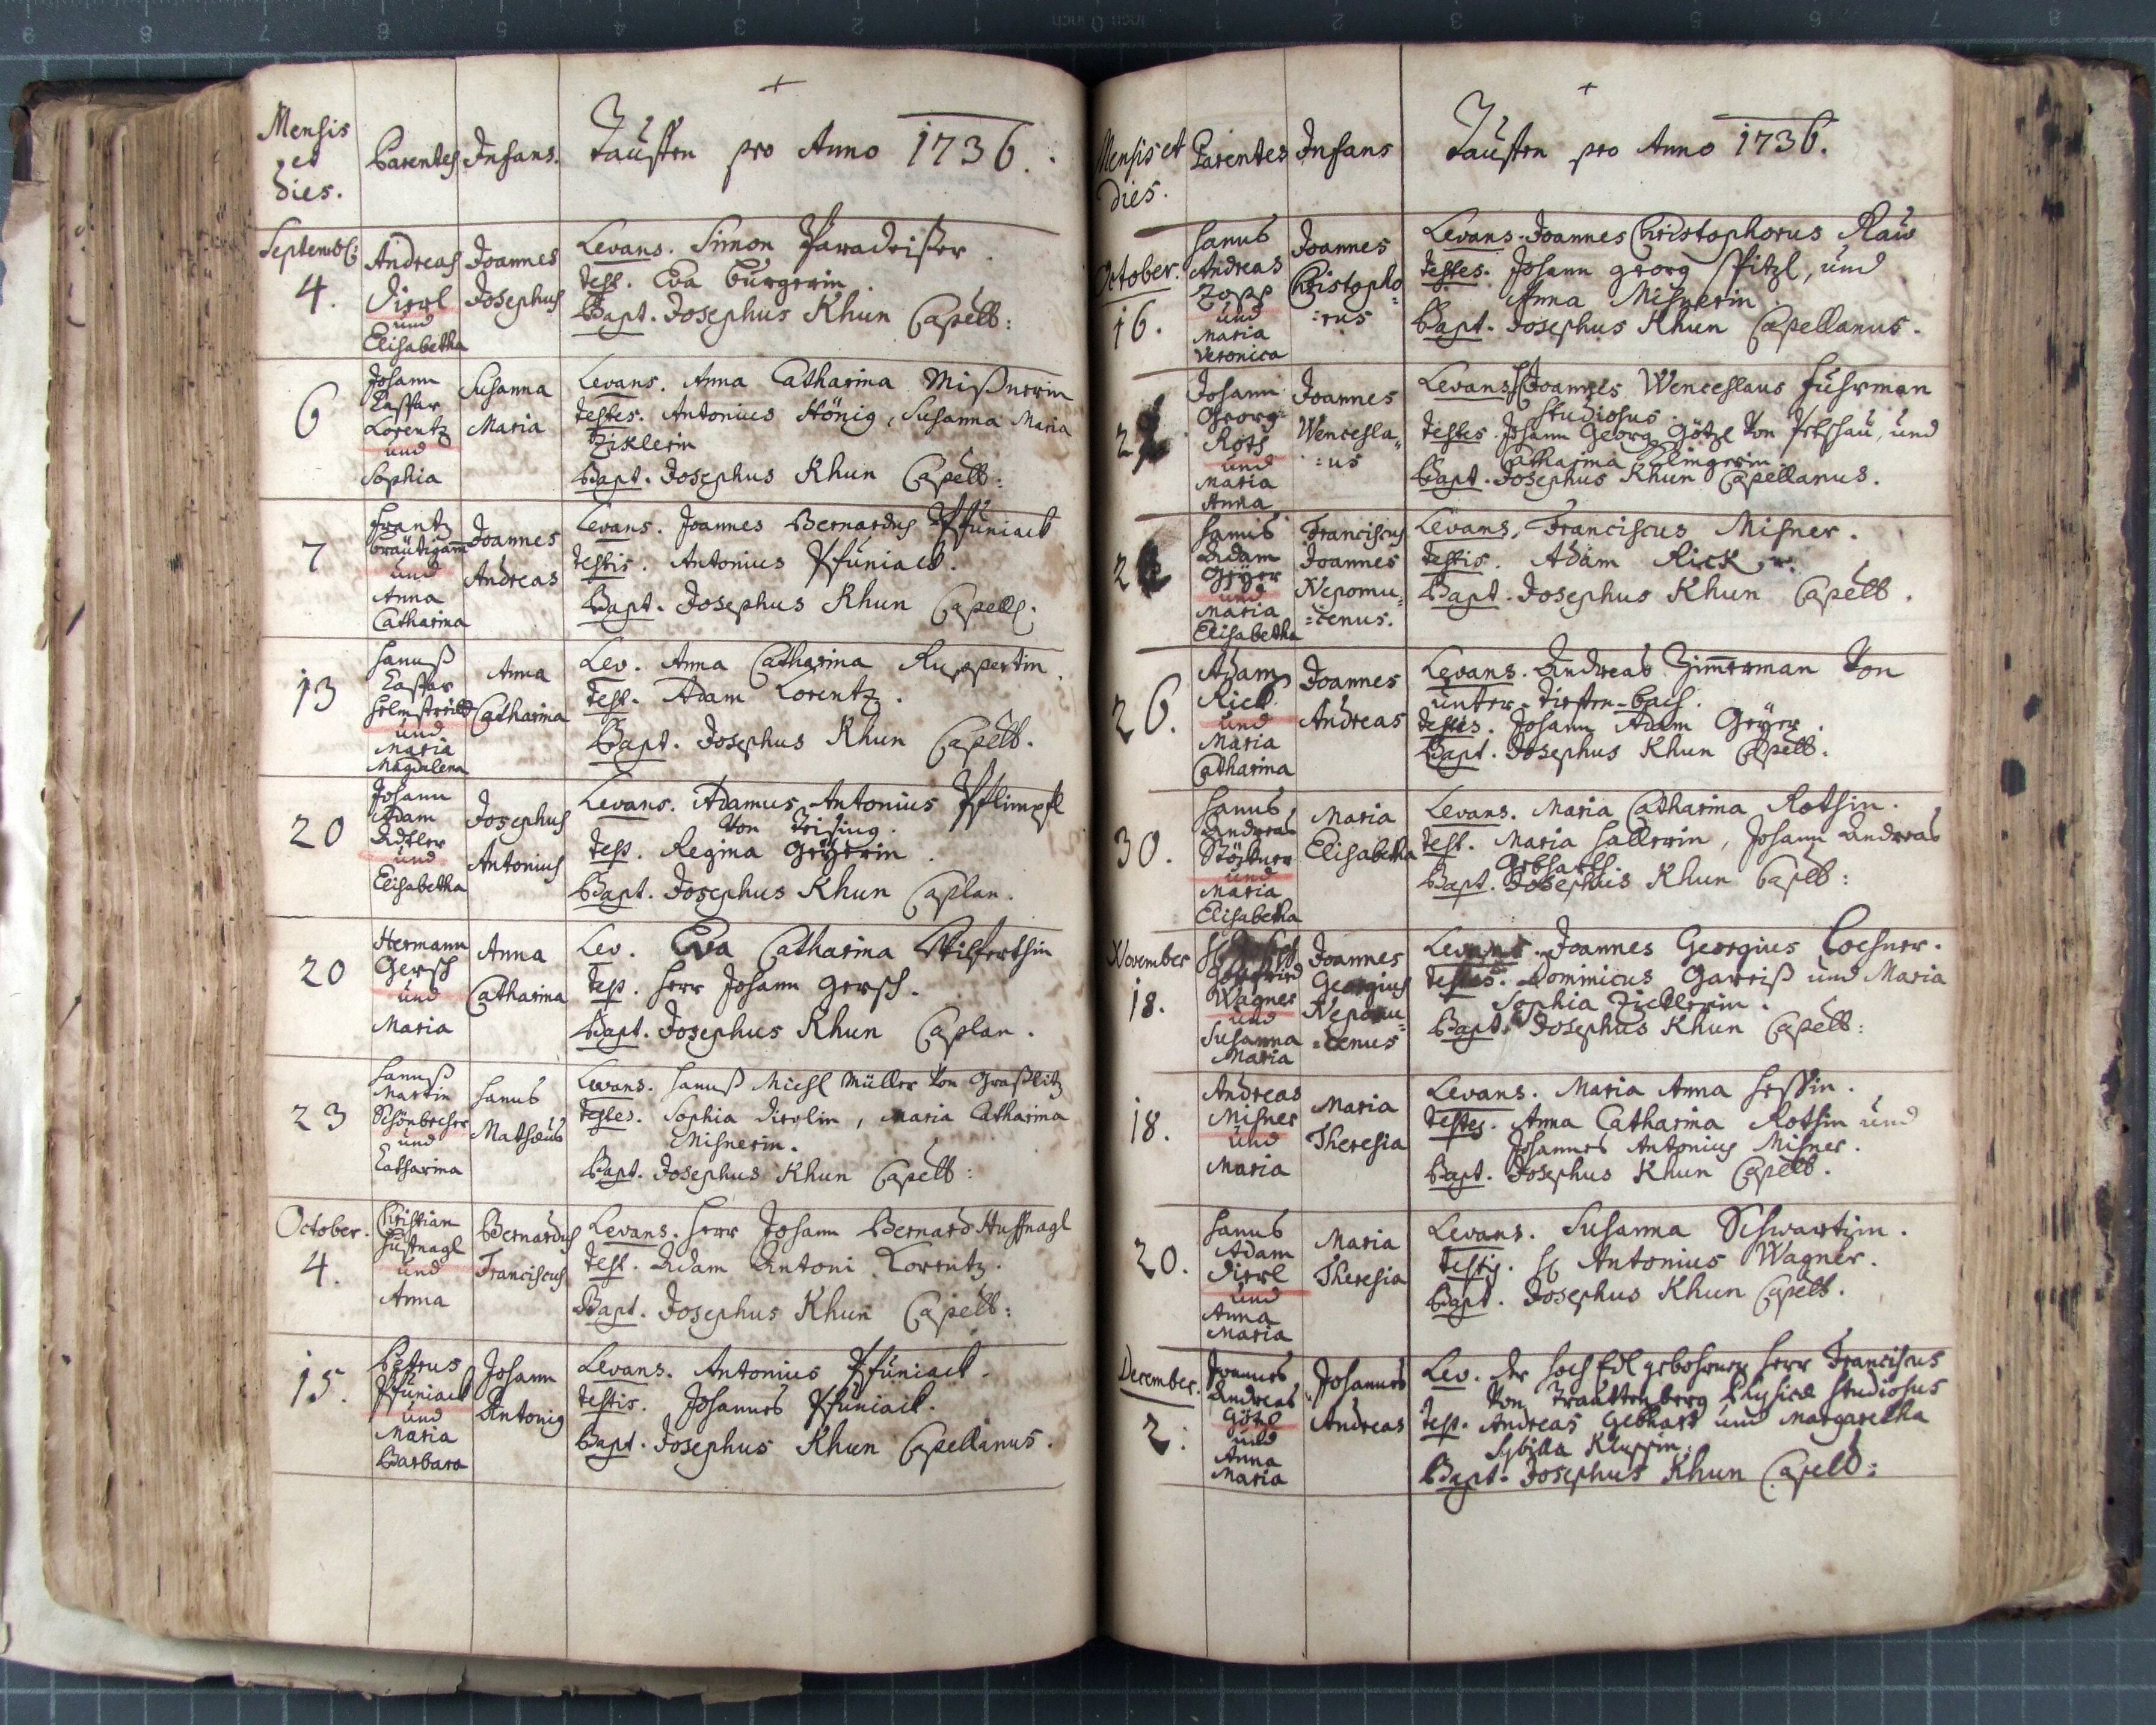 Mensis
et
dies.
Parentes
Infans.
Tauffen pro Anno 1736.
Septemb:
4.
Andreas
Dierl
und
Elisabetha
Joannes
Josephus
Levans. Simon Paradeißer.
Test. Eva Burgerin.
Bapt. Josephus Khun Capell:
6
Johann
Caspar
Lorentz
und
Sophia
Susanna
Maria
Levans. Anna Catharina Mißnerin
Testes. Antonius Hönig, Susanna Maria
Ziklerin
Bapt. Josephus Khun Capell:
7
Frantz
Bräutigam
und
Anna
Catharina
Joannes
Andreas
Levans. Joannes Bernardus Pfuniack
Testis. Antonius Pfuniack.
Bapt. Josephus Khun Capell:
13
Hannß
Caspar
und
Maria
Magdalena
Anna
Catharina
Lev. Anna Catharina Ruppertin.
Test. Adam Lorentz.
Bapt. Josephus Khun Capell.
20
Johann
Adam
Adler
und
Elisabetha
Josephus
Antonius
Levans. Adamus Antonius Pflimpfl
Von Trising.
Test. Regina Geÿerin.
Bapt. Josephus Khun Caplan.
20
Hermann
Gersch
und
Maria
Anna
Catharina
Lev. Eva Catharina
Test. Herr Johann Gersch.
Bapt. Josephus Khun Caplan.
23
Hannß
Martin
Schönbecher
und
Catharina
Hanns
Mathæus
Levans. Hannß Michl Müller Von Graßlitz
Testes. Sophia Dierlin, Maria Catharina
Misnerin.
Bapt. Josephus Khun Capell:
October.
4.
Christian
Huffnagl
und
Anna
Bernardus
Franciscus
Levans. Herr Johann Bernard Huffnagl
Test. Adam Antoni Lorentz.
Bapt. Josephus Khun Capell:
15.
Petrus
Pfuniack
und
Maria
Barbara
Johann
Antonig
Levans. Antonius Pfuniack.
Testis. Johannes Pfuniack.
Bapt. Josephus Khun Capellanus.
Mensis et
Dies.
Parentes
Infans
Tauffen pro Anno 1736.
October.
16.
Hanns
Andreas
Zapp
und
Maria
Veronica
Joannes
Christopho:
:rus
Levans. Joannes Christophorus Raw
Testes. Johann Georg Spitzl, und
Anna Misnerin.
Bapt. Josephus Khun Capellanus.
Johann
Georg
Roth
und
Maria
Anna
Joannes
Wencesla:
:us
Levans. Joannes Wenceslaus Fuhrman
Studiosus
Testes. Johann Georg Götzl Von Petschau, und
Catharina
Bapt. Josephus Khun Capellanus.
Hanns
Adam
Geÿer
und
Maria
Elisabetha
Franciscus
Joannes
Nepomu:
:cenus.
Levans. Franciscus Misner.
Testis. Adam Rick
Bapt. Josephus Khun Capell.
26.
Adam
Rick
und
Maria
Catharina
Joannes
Andreas
Levans. Andreas Zimmerman Von
unter-Tieffen-bach.
Testis. Johann Adam Geÿer.
Bapt. Josephus Khun Capell.
30.
Hanns
Andreas
Stöckner
und
Maria
Elisabetha
Maria
Elisabetha
Levans. Maria Catharina Rothin.
Test. Maria Hallerin, Johann Andreas
Gebharth
Bapt. Josephus Khun Capell:
November
18.
Gottfried
Wagner
und
Susanna
Maria
Joannes
Georgius
Nepomu:
:cenus
Levans. Joannes Georgius Loesner.
Testes. Dominicus Garriß und Maria
Sophia Ticklerin.
Bapt. Josephus Khun Capell:
18.
Andreas
Misner
und
Maria
Maria
Theresia
Levans. Maria Anna Hessin.
Testes. Anna Catharina Rothin und
Johannes Antonius Misner.
Bapt. Josephus Khun Capell.
20.
Hanns
Adam
Dierl
und
Anna
Maria
Maria
Theresia
Levans. Susanna Schwartzin.
Testis. H. Antonius Wagner.
Bapt. Josephus Khun Capell.
December.
2.
Joannes
Andreas
Götzl
und
Anna
Maria
Johannes
Andreas
Lev. der HochEdl gebohrne Herr Franciscus
Von Trauttenberg Physicæ Studiosus
Test. Andreas Gebhart und Margaretha
Sybilla Kluppin.
Bapt. Josephus Khun Capell: